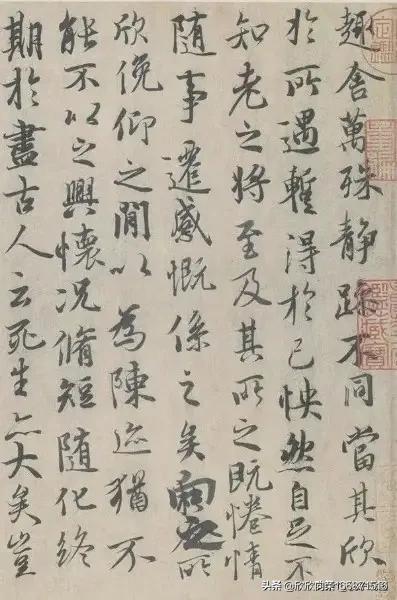 趣舍萬殊静躁不同當其欣
於所遇蹔得於己怏然自足不
知老之將至及其所之既惓情
随事遷感慨係之矣向之所
欣俛仰之閒以為陳迹猶不
能不以之興懷况脩短随化終
期於盡古人云死生亦大矣豈
头条 @欣欣向荣